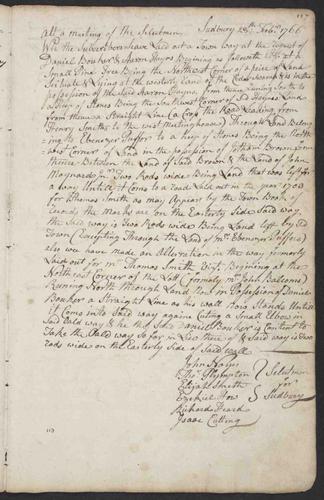 117
att a meeting of the Selectmen Sudbury 28th Feby 1766
We the Subscribers have Laid out a Town Way att the Request of
Daniel Bowker & Aaron Haynes Begining as followeth Viz att a
Small Pine Tree Being the Northeast Corner of a piece of Land
Scituate & Lying at the westerly End of the
possession of the Said Aaron Haynes from thence Runing South to
a Heap of Stones Being the Southwest Corner of Sd Haynes Land
from thence a Straight Line Cross the Road Leading from
Henry Smiths to the west meetinghouse Through Land Belong
ing to Ebenezer Puffer to a heap of Stones Being the North
west Corner of Land in the possession of Jotham Brown from
thence Between the Land of Said Brown & the Land of John
Maynard Jnr Two Rods wide Being Land that was Left for
a way Untill it Come to a Road Laid out in the year 1703
for Thomas Smith as may Appear by the Town Book of
records the Marks are on the Easterly Side Said way
the Said way is Two Rods wide Being Land left by Sd
Town (Excepting Through the Land of mr Ebenezer Puffers)
also we have made an Alteration in the way formerly
Laid out for mr Thomas Smith Vizt Begining at the
Northeast Corner of the Wall (formerly mr John Balcom)
Runing North through Land in the possession of Daniel
Bowker a Straight Line as his wall now Stands Untill
it Come into Said way again Cuting a Small Elbow in
Said old way & he the Sd Daniel Bowker is Content to
Take the old way So far in Lieu thereof & Said way is two
rods wide on the Easterly Side of Said wall
John Haynes
Thos Plympton
Elijah Smith
Ezekiel How
Richard Heard
Isaac Cutting
Selectmen
for
Sudbury